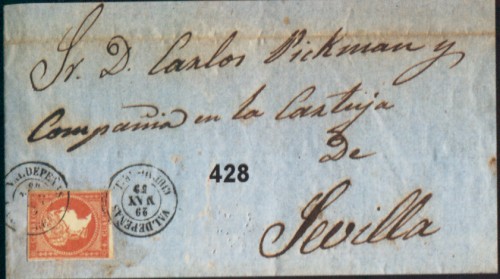 Sr. D. Carlos Pickman y
Compañia en la Cartuja
De
Sevilla
428
VALDEPEÑAS
VALDEPEÑAS
29
59